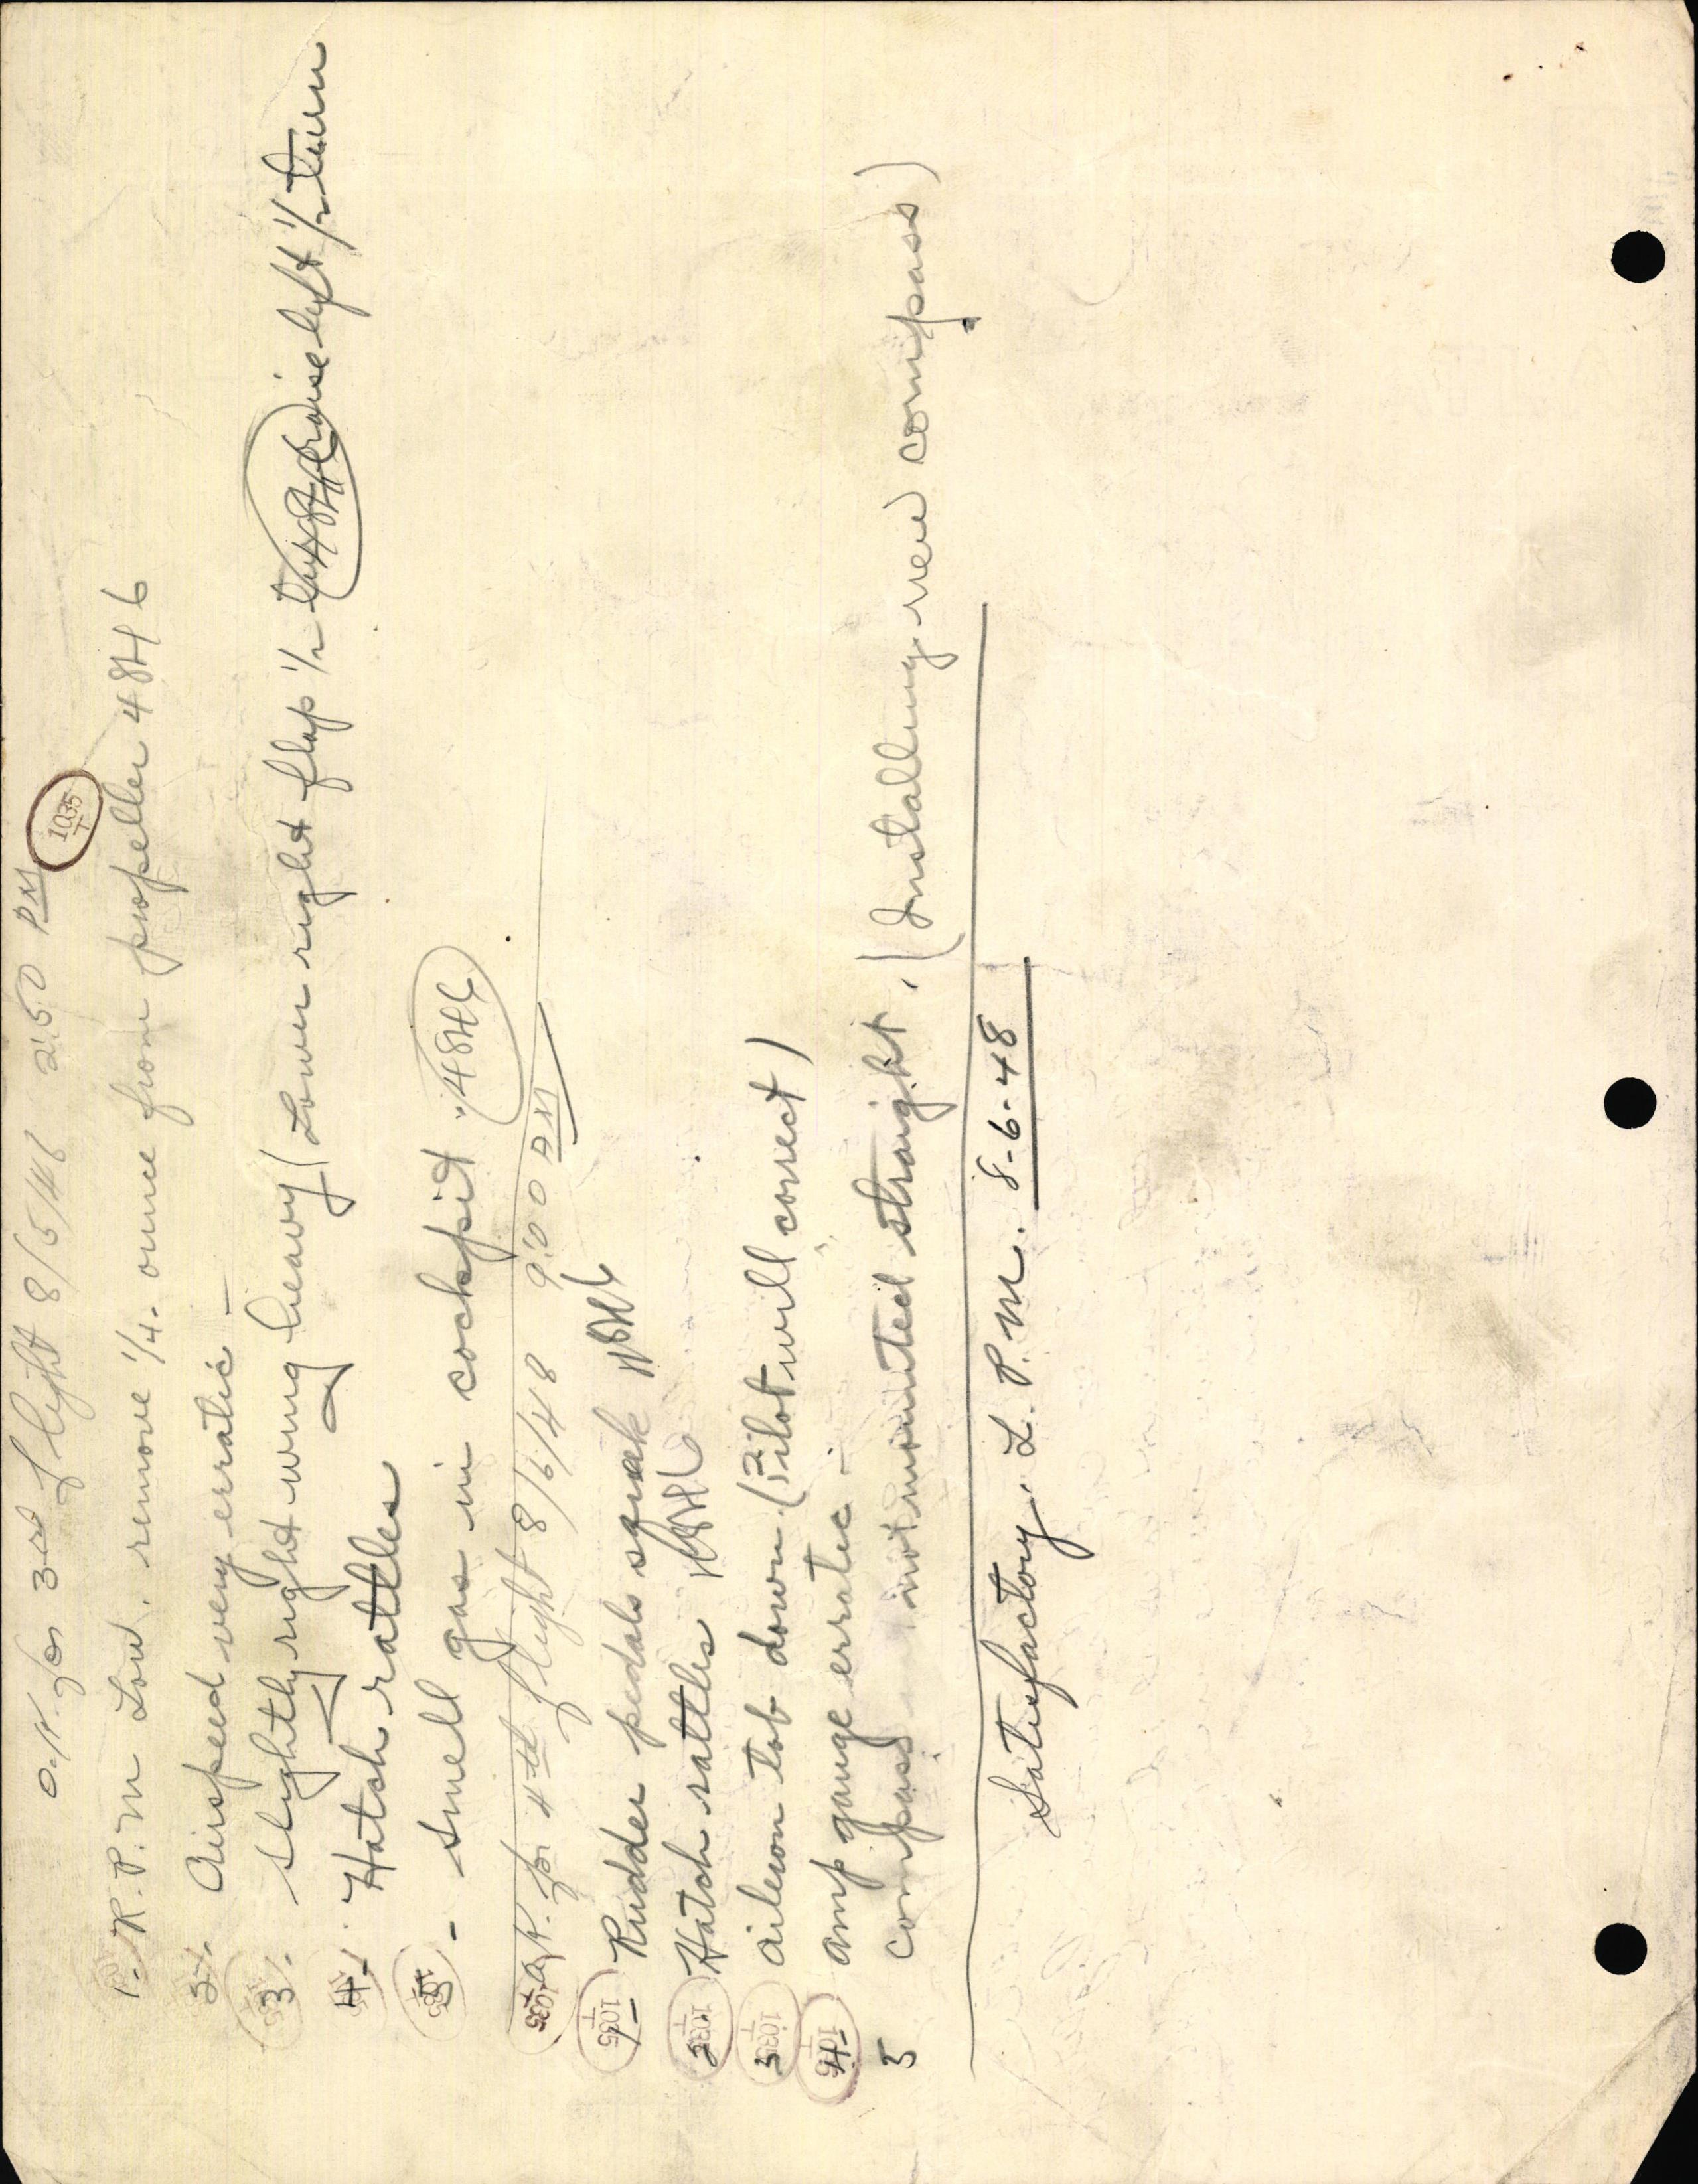 O.K. for 3rd flight 8/5/48 2:50 PM 1035 T
1- R.P.M Low. remove 1/4. ounce from propeller 48H6
2- Airspeed very erratic -
3- slightly right wing heavy (Lower right flap 1/2 raise left 1/2 turn
4- Hatch rattles
5 - smell gas in cockpit. 48H6
1035 T O.K. for 4th flight 8/6/48 9:00 AM
1- Rudder pedals squeak 48H6 1035 T
2 Hatch rattles 48H6 1035 T
3 aileron tab down. (Pilot will correct) 1035 T
4- amp gauge erratic - 1035 T
5 compass not mounted straight. (Installing new compass)
Satisfactory. L.P.M. 8-6-48